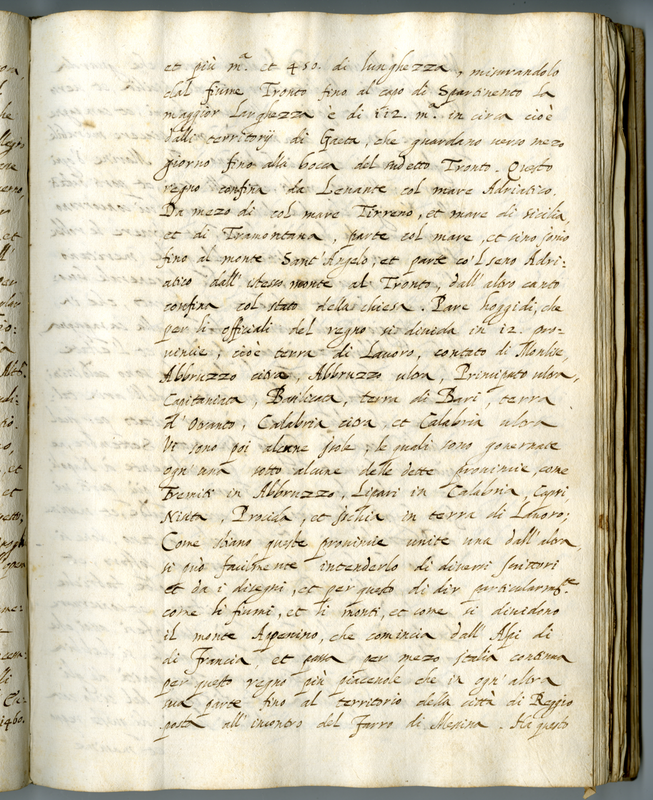 et più m.ª et 450. di lunghezza, misurandolo
dal fiume Tronto fino al capo di Spartivento la
maggior larghezza è di 112. m.ª in circa cioè
dalli territorij di Gaeta, che guardano verso mezo
giorno fino alla bocca del sudetto Tronto. Questo
regno confina da Levante col mare Adriatico.
Da mezo dì col mare Tirreno, et mare di Sicilia,
et di Tramontana, parte col mare, et sino Ionio
fino al monte Sant'Angelo, et parte co'l seno Adri-
atico dall'istesso monte al Tronto, dall'altro canto
confina col stato della chiesa. Pare hoggidì, che
per li officiali del regno si divida in 12. pro-
vincie, cioè terra di Lavoro, contato di Molise,
Abbruzzo citra, Abbruzzo ultra, Principato ultra,
Capitaniata, Basilicata, terra di Bari, terra
d'Otranto, Calabria citra, et Calabria ultra
Vi sono poi alcune Isole, le quali sono governate
ogn'una sotto alcune delle dette provincie, come
Tremiti in Abbruzzo, Lipari in Calabria, Capri,
Nisita, Procida, et Ischia in terra di Lavoro;
Come stiano queste provincie unite una dall'altra,
si può facilmente intenderlo di diversi scrittori
et da i disegni, et per questo di dir particularm.te
come li fiumi, et li monti, et come si dividono
il monte Appenino, che comincia dall'Alpi di
di Francia, et passa per mezo Italia continua
per questo regno più piacevole che in ogn'altra
sua parte fino al territorio della città di Reggio
posta all'incontro del Farro di Messina. Ha questo